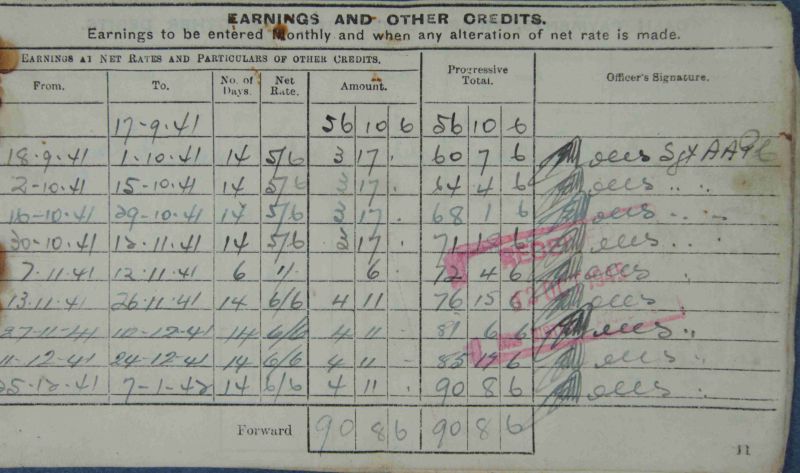 EARNINGS AND OTHER CREDITS.
Earnings to be entered Monthly and when any alteration of net rate is made.
EARNINGS AT NET RATES AND PARTICULARS OF OTHER CREDITS.
From. To. No. of Days. Net Rate. Amount. Progressive Total. Officer's Signature.
17-9-41 56 10 6 56 10 6
18-9-41 1-10-41 14 5/6 3 17 . 60 7 6 Sgt
2-10-41 15-10-41 14 5/6 3 17 . 64 4 6 " "
16-10-41 29-10-41 14 5/6 3 17 . 68 1 6 " "
30-10-41 12-11-41 14 5/6 3 17 . 71 18 6 " "
7-11-41 12-11-41 6 1/. 6 . 72 4 6 "
13-11-41 26-11-41 14 6/6 4 11 76 15 6
27-11-41 10-12-41 14 6/6 4 11 - 81 6 6 "
11-12-41 24-12-41 14 6/6 4 11 - 85 17 6 "
25-12-41 7-1-42 14 6/6 4 11 . 90 8 6
Forward 90 8 6 90 8 6
11